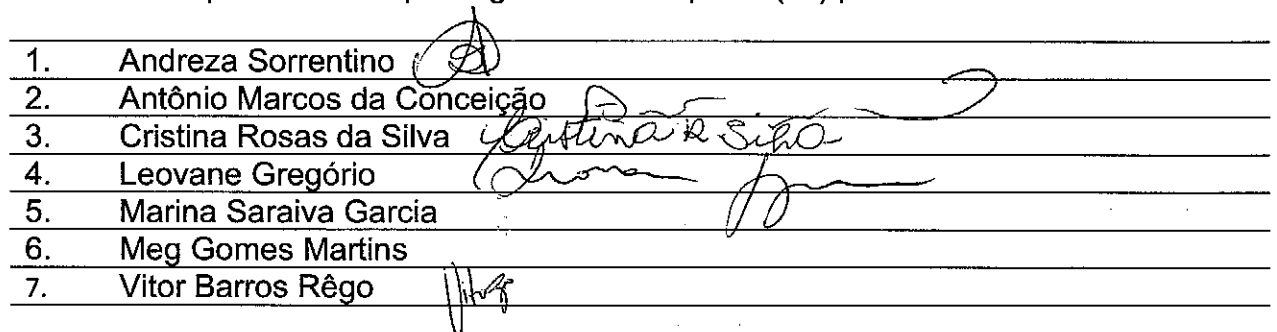 1. Andreza Sorrentino
2. Antônio Marcos da Conceição
3. Cristina Rosas da Silva Cristina R Silva
4. Leovane Gregório
5. Marina Saraiva Garcia
6. Meg Gomes Martins
7. Vitor Barros Rêgo